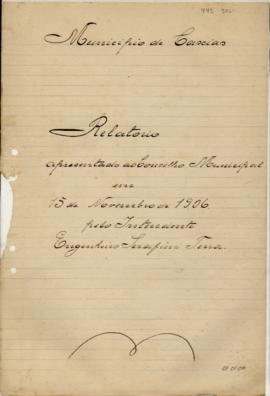 Municipio de Caxias
Relatorio
apresentado ao Conselho Municipal
em
15 de Novembro de 1906
pelo Intendente
Engenheiro Serafim Terra.